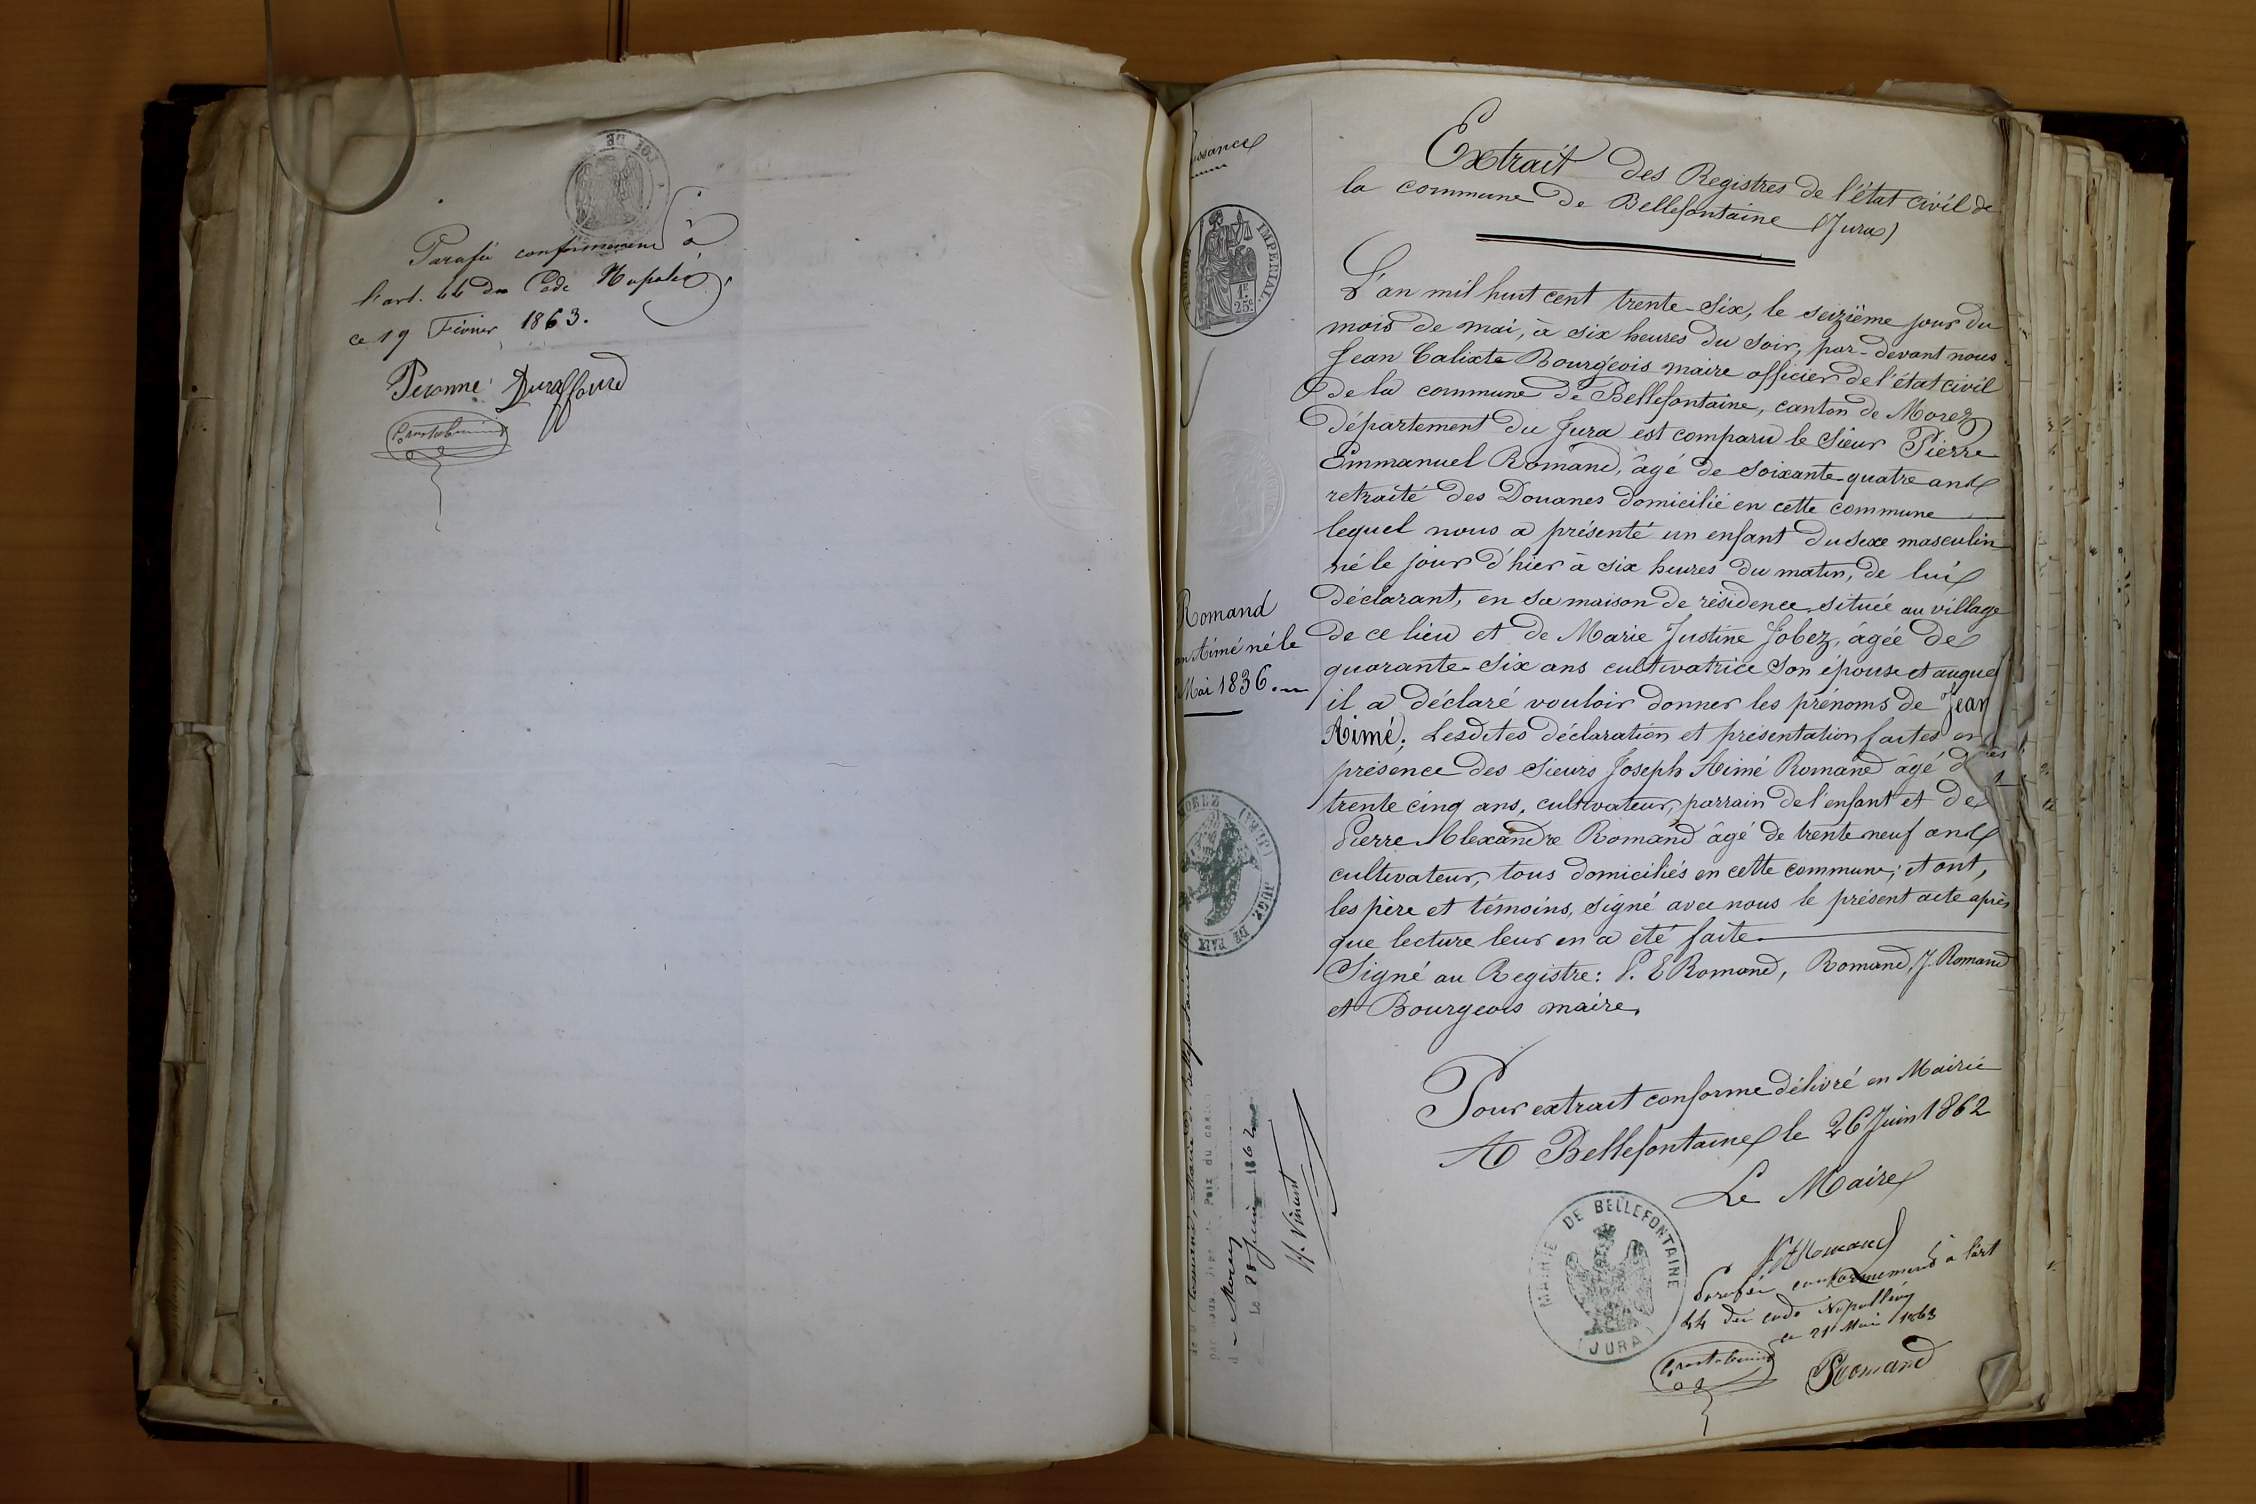 Parafé conformément à
l'art. 44 du Code Napoléon
ce 19 Février 1863.
Peronne Duraffourd
issance
TIMBRE IMPERIAL
1F.
25c.
Romand
Aimé né le
Mai 1836.
MOREZ (JURA)
JUGE DE PAIX
Paix du canton
Morez
Le 28 juin 1862
H. Vincent
Extrait des Registres de l'état civil de
la commune de Bellefontaine (Jura)
L'an mil huit cent trente-six, le seizième jour du
mois de mai, à six heures du soir, par-devant nous
Jean Calixte Bourgeois maire officier de l'état civil
de la commune de Bellefontaine, canton de Morez
Département du Jura est comparu le sieur Pierre
Emmanuel Romand, âgé de soixante-quatre ans
retraité des Douanes domicilié en cette commune
lequel nous a présenté un enfant du sexe masculin
né le jour d'hier à six heures du matin, de lui
déclarant, en sa maison de résidence située au village
de ce lieu et de Marie Justine Jobez, âgée de
quarante-six ans cultivatrice son épouse et auquel
il a déclaré vouloir donner les prénoms de Jean
Aimé; Lesdites déclaration et présentation faites en
présence des sieurs Joseph Aimé Romand âgé de
trente cinq ans, cultivateur, parrain de l'enfant et de
Pierre Alexandre Romand âgé de trente neuf ans
cultivateur, tous domiciliés en cette commune; et ont,
les père et témoins, signé avec nous le présent acte après
que lecture leur en a été faite.
Signé au Registre: P. E Romand, Romand, J. Romand
et Bourgeois maire.
Pour extrait conforme délivré en Mairie
A Bellefontaine le 26 Juin 1862
Le Maire
Romand
MAIRIE DE BELLEFONTAINE
(JURA)
Parafé conformément à l'art
44 du code Napoléon
ce 21 Mai 1863
Romand